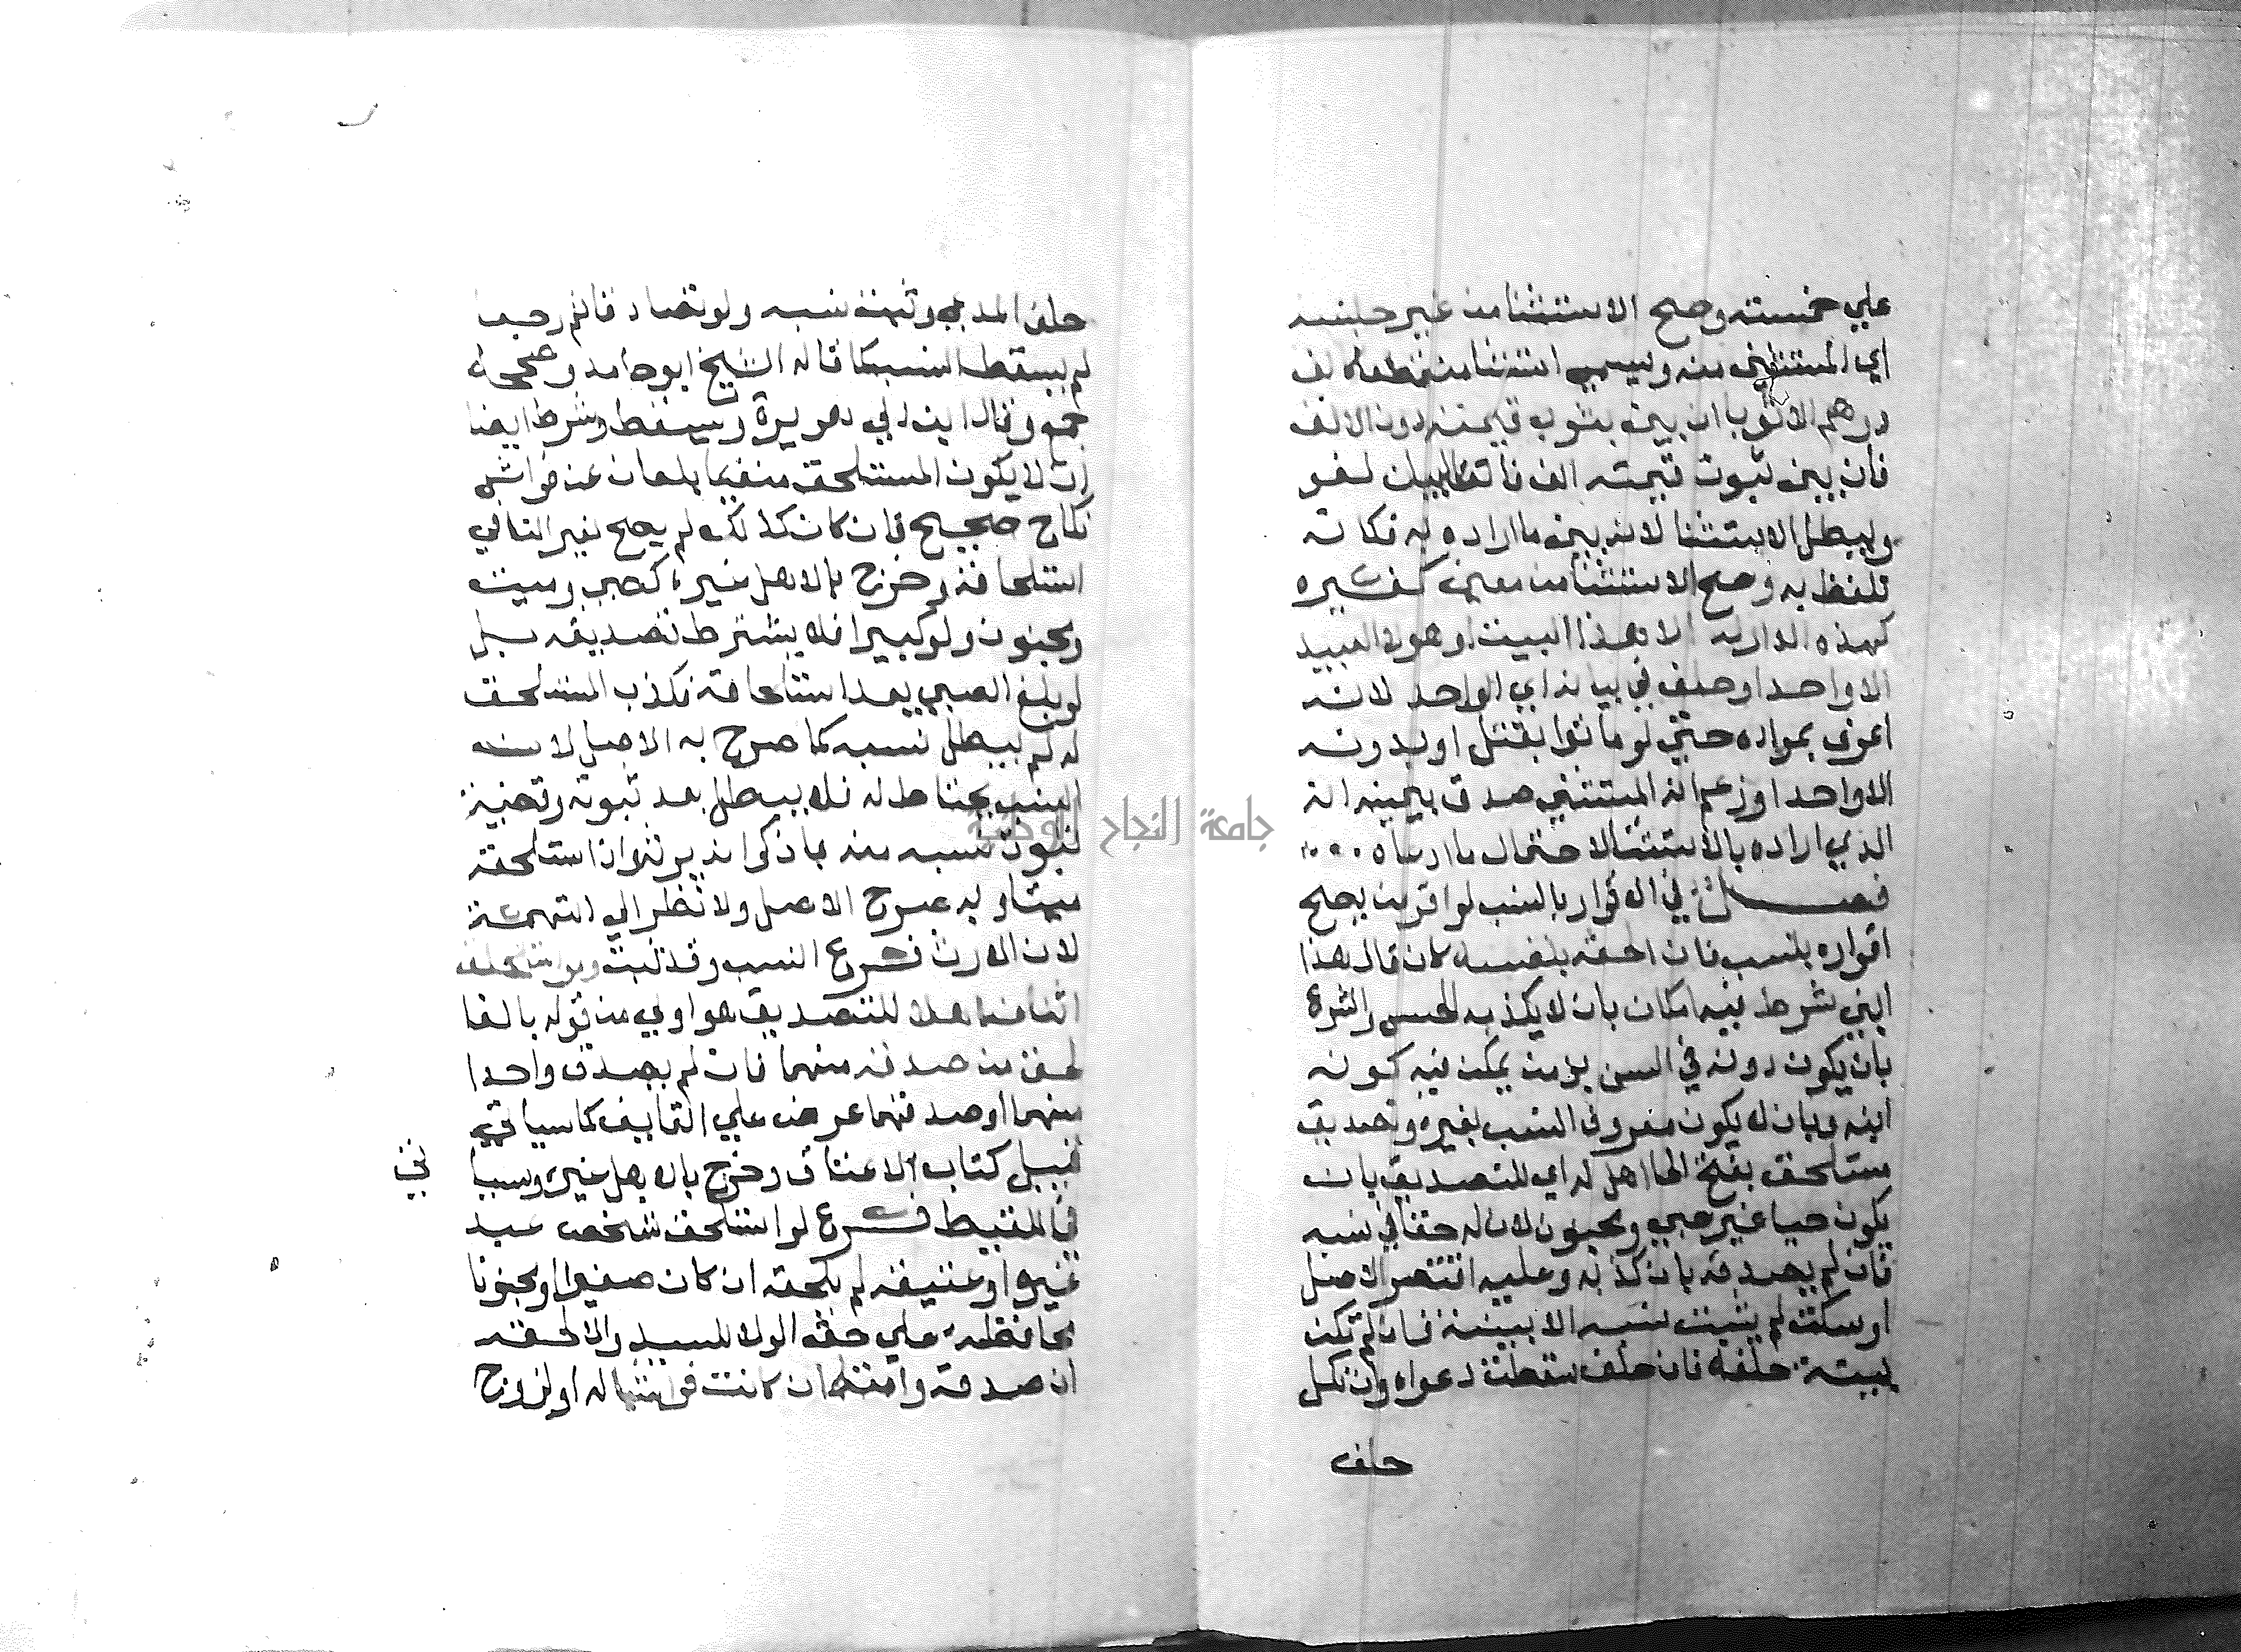 علي خمسته وصح الاستثنا من غير جنسه
اي المستثني منه ويسمي استثنا منقطعا كالف
درهم الا ثوبا ان بين بثوب قيمته دون الالف
فان بين بثوب قيمته الف فاتفا البيان لغو
ويبطل الاستثنا لانه بين ما اراده به فكانه
تلفظ به وصح الاستثنا من معين كغيره
كهذه الدار له الا هذا البيت او هولا العبيد
الا واحدا وحلف في بيانه اي الواحد لانه
اعرف بمراده حتي لو ماتوا بقتل او بدونه
الا واحدا وزعم انه المستثني صدق بيمينه انه
الذي اراده بالاستثنا لاحتمال ما ادعاه
فصل في الاقرار بالنسب لو اقر من يصح
اقراره بنسب فان الحقه بنفسه كان قال هذا
ابني شرط فيه امكان بان لا يكذبه الحس والشرع
بان يكون دونه في السن بزمن يمكن فيه كونه
ابنه وبان لا يكون معروف النسب بغيره وتصديق
مستلحق بفتح الحا اهل له اي للتصديق بان
يكون حيا غير صبي ومجنون لان له حقا في نسبه
فان لم يصدقه بان كذبه وعليه اقتصر الاصل
او سكت لم يثبت نسبه الا ببينة فان لم تكن
بينة حلفه فان حلف سقطت دعواه وان نكل
حلف
حلف المدعي وثبت نسبه ولو تصادقا ثم رجعا
لم يسقط النسب كما قاله الشيخ ابو حامد وصححه
جمع وقال ابن ابي هريرة يسقط وشرط ايضا
ان لا يكون المستلحق منفيا بلعان عن فراش
نكاح صحيح فان كان كذلك لم يصح لغير النافي
استلحاقه وخرج بالاهل غيره كصبي وميت
ومجنون ولو كبيرا فلا يشترط تصديقه بل
لو بلغ الصبي بعد استلحاقه فكذب المستلحق
له لم يبطل نسبه كما صرح به الاصل لان
النسب يحتاط له فلا يبطل بعد ثبوته وقضية
ثبوت نسبه منه بما ذكر انه يرثه اذا استلحقه
ميتا وبه صرح الاصل ولا نظر الي التهمة
لان الارث فرع النسب وقد ثبت ولو استلحق
اثنان اهلا للتصديق هو اولي من قوله بالغا
لحق من صدقه منهما فان لم يصدق واحدا
منهما او صدقهما عرض علي القايف كما سياتي
قبيل كتاب الاعتاق وخرج بالاهل غيره وسيا
تي
في اللقيط فرع لو استلحق شخص عبد
غيره او عتيقه لم يلحقه ان كان صغيرا او مجنونا
محافظة علي حق الولا للسيد والا لحقه
ان صدقه وامته ان كانت فراشا له او لزوج